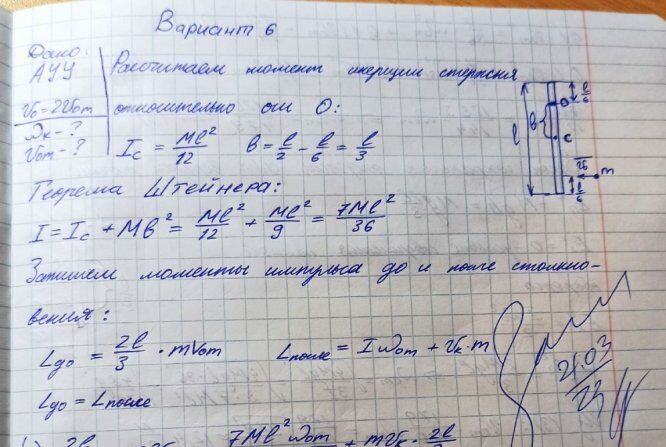 Вариант 6
Дано:
АУУ
v₀ = 2v₀ₘ
Ωₖ - ?
v₀ₘ - ?
Рассчитаем момент инерции стержня
относительно оси O:
I_c = Ml²/12   b = l/2 - l/6 = l/3
Теорема Штейнера:
I = I_c + Mb² = Ml²/12 + Ml²/9 = 7Ml²/36
Запишем моменты импульса до и после столкно-
вения:
L_до = 2l/3 · mv_от   L_после = Iω_от + v_к · m
L_до = L_после
7Ml²ω_от
l/6
O
b
l
C
v₀
m
l/6
21.03
23